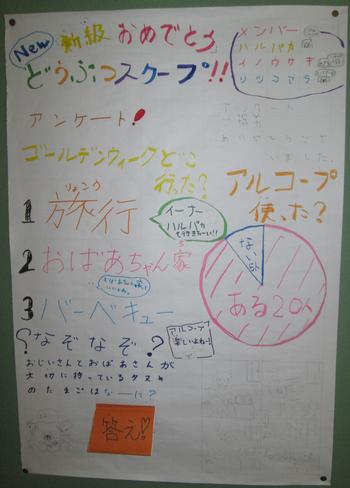 New
新級おめでとう
どうぶつスクープ!!
メンバー
ハルパカ
イノウサギ
リツコアラ
アンケート!
アンケート
ご協力
ありがとうござ
いました。
ゴールデンウィークどこ
行った?
1 旅行
りょこう
イーナー
ハルパカ
も行きたーい!!
2 おばあちゃん家
3 バーベキュー
アルコープ
使った?
ない
ある20人
なぞなぞ?
アルコープ
楽しいよねっ!
おじいさんとおばあさんが
大切に持っているタスキ
のたまごはなーに?
答え♡